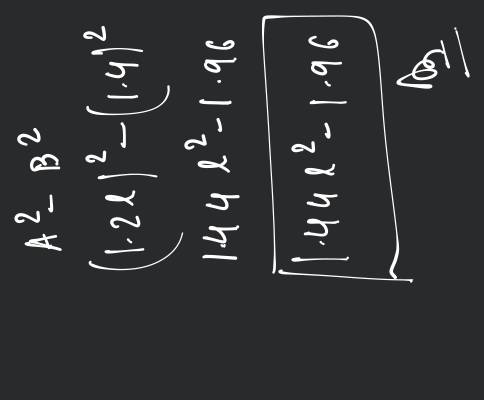 A² - B²
(1.2l)² - (1.4)²
144l² - 1.96
1.44l² - 1.96